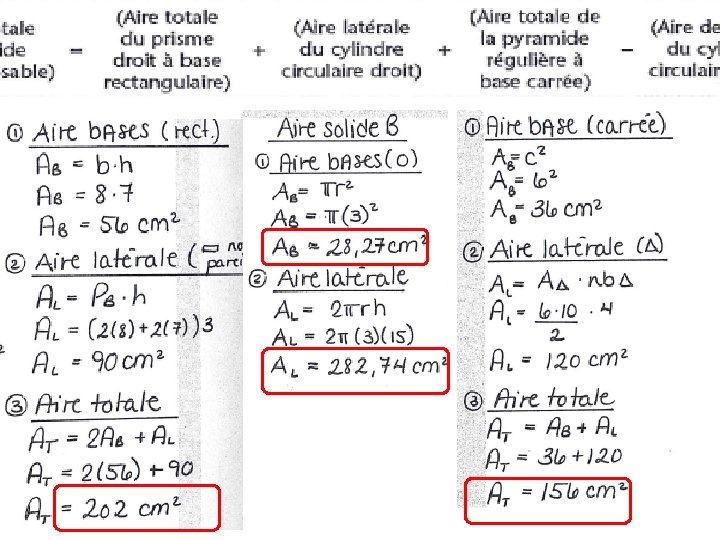 tale
ide
sable)
=
(Aire totale
du prisme
droit à base
rectangulaire)
+
(Aire latérale
du cylindre
circulaire droit)
+
(Aire totale de
la pyramide
régulière à
base carrée)
−
(Aire de
du cyl
circulair
① Aire bases (rect.)
AB = b·h
AB = 8·7
AB = 56 cm²
② Aire latérale (▭ no
parti
AL = PB·h
AL = (2(8)+2(7))3
AL = 90 cm²
③ Aire totale
AT = 2AB + AL
AT = 2(56) + 90
AT = 202 cm²
Aire solide B
① Aire bases (O)
AB = πr²
AB = π(3)²
AB ≈ 28,27 cm²
② Aire latérale
AL = 2πrh
AL = 2π(3)(15)
AL ≈ 282,74 cm²
① Aire base (carrée)
AB = c²
AB = 6²
AB = 36 cm²
② Aire latérale (Δ)
AL = AΔ · nb Δ
AL = 6·10 · 4
2
AL = 120 cm²
③ Aire totale
AT = AB + AL
AT = 36 + 120
AT = 156 cm²